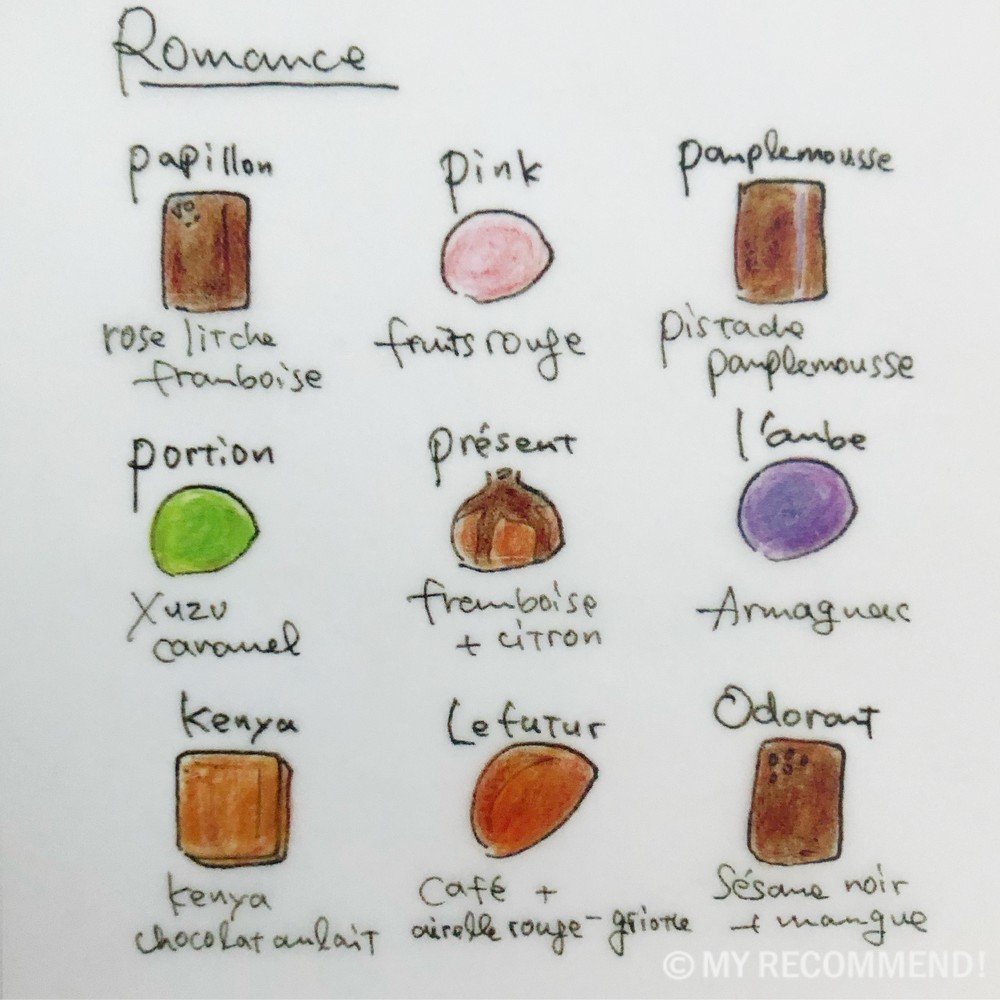 Romance
papillon
pink
pamplemousse
rose litche
framboise
fruits rouge
pistache
pamplemousse
portion
présent
l'aube
Yuzu
caramel
framboise
+ citron
Armagnac
kenya
Le futur
Odorant
kenya
chocolat aulait
Café +
airelle rouge-griotte
Sésame noir
+ mangue
© MY RECOMMEND!